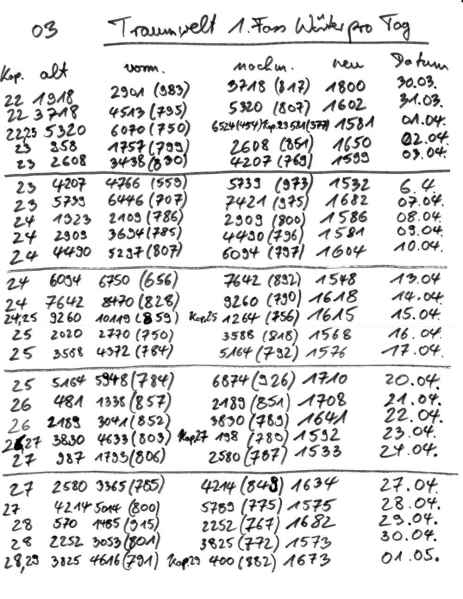 03 Traumwelt 1. Fass Wörter pro Tag
Kap. alt vorm. nachm. neu Datum
22 1918 2901 (983) 3718 (817) 1800 30.03.
22 3718 4513 (795) 5320 (807) 1602 31.03.
22,23 5320 6070 (750) 6524 (454) Kap.23 581 (377) 1581 01.04.
23 958 1757 (799) 2608 (851) 1650 02.04.
23 2608 3438 (830) 4207 (769) 1599 03.04.
23 4207 4766 (559) 5739 (973) 1532 6.4.
23 5739 6446 (707) 7421 (975) 1682 07.04.
24 1323 2109 (786) 2909 (800) 1586 08.04.
24 2909 3694 (785) 4490 (796) 1581 09.04.
24 4490 5297 (807) 6094 (797) 1604 10.04.
24 6094 6750 (656) 7642 (892) 1548 13.04
24 7642 8470 (828) 9260 (790) 1618 14.04.
24,25 9260 10119 (859) Kap25 1264 (756) 1615 15.04.
25 2020 2770 (750) 3588 (818) 1568 16.04.
25 3588 4372 (784) 5164 (792) 1576 17.04.
25 5164 5948 (784) 6874 (926) 1710 20.04.
26 481 1338 (857) 2189 (851) 1708 21.04.
26 2189 3041 (852) 3830 (789) 1641 22.04.
26,27 3830 4633 (803) Kap27 198 (789) 1592 23.04.
27 987 1793 (806) 2580 (787) 1593 24.04.
27 2580 3365 (785) 4214 (849) 1634 27.04.
27 4214 5014 (800) 5789 (775) 1575 28.04.
28 570 1485 (915) 2252 (767) 1682 29.04.
28 2252 3053 (801) 3825 (772) 1573 30.04.
28,29 3825 4616 (791) Kap29 400 (882) 1673 01.05.